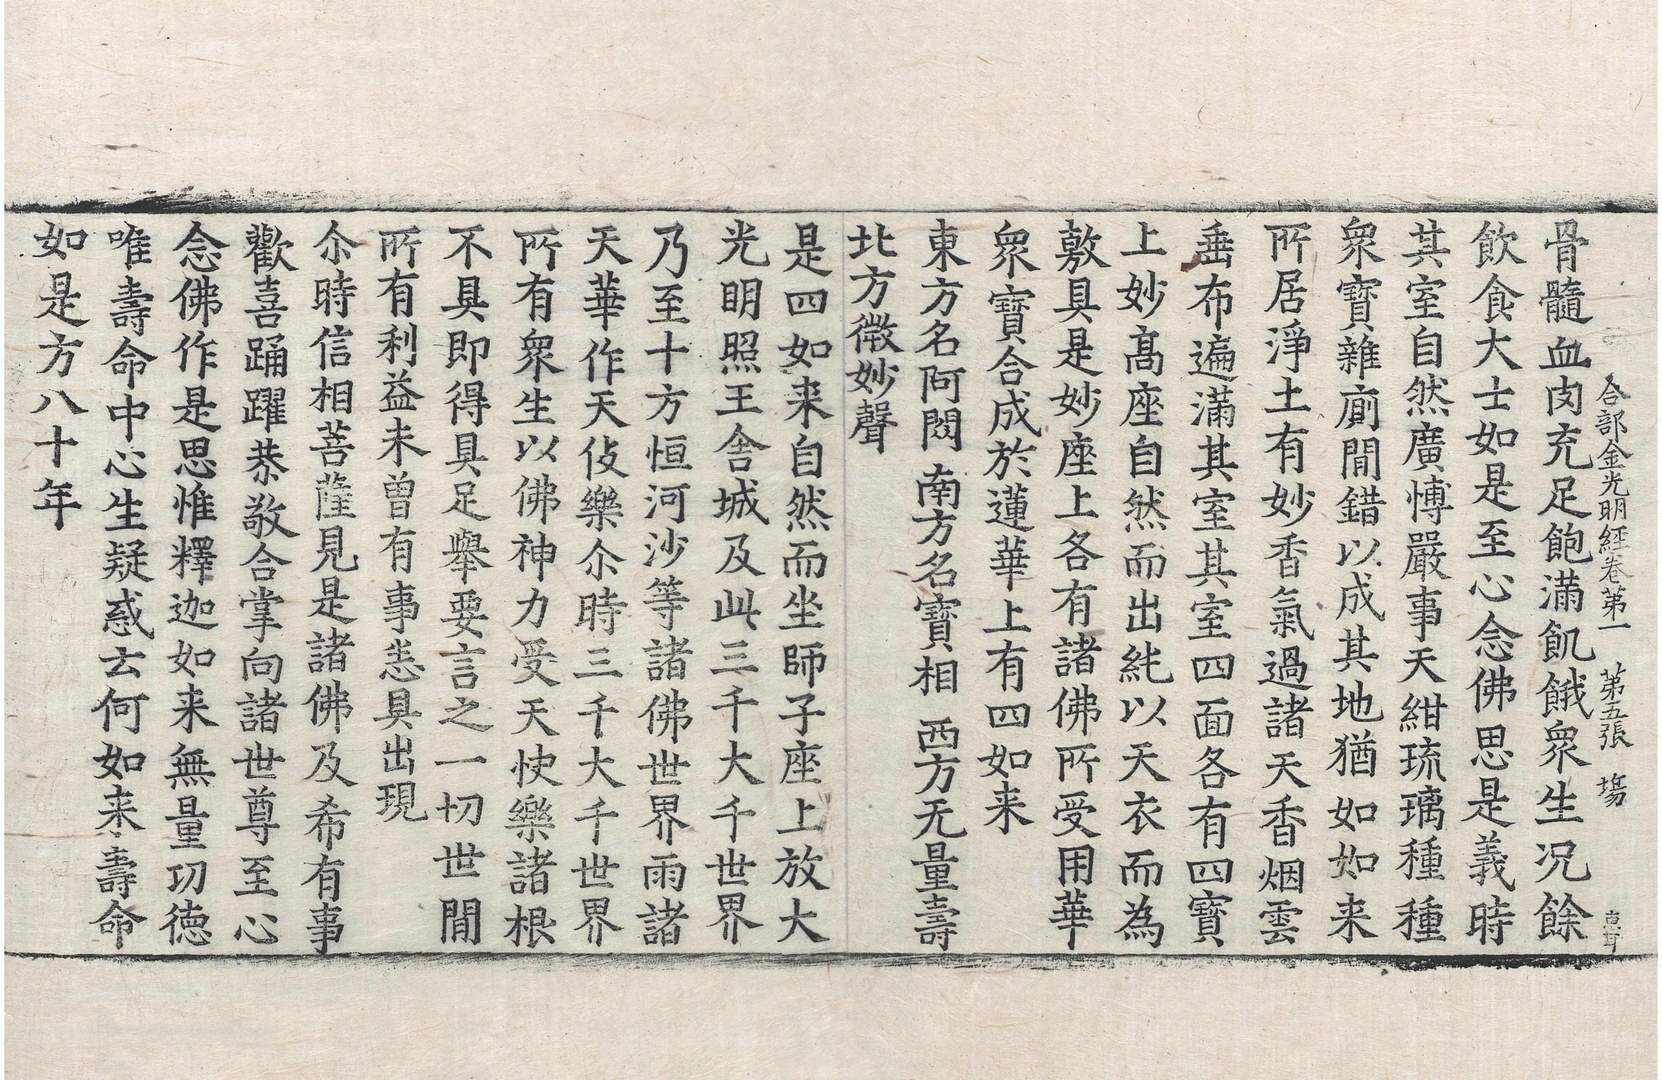 合部金光明經卷第一　第五張　場
骨髓血肉充足飽滿飢餓衆生況餘
飲食大士如是至心念佛思是義時
其室自然廣愽嚴事天紺琉璃種種
衆寶雜廁閒錯以成其地猶如如来
所居淨土有妙香氣過諸天香烟雲
垂布遍滿其室其室四面各有四寶
上妙髙座自然而出純以天衣而為
敷具是妙座上各有諸佛所受用華
衆寶合成於蓮華上有四如来
東方名阿閦 南方名寶相 西方无量壽
北方微妙聲
是四如来自然而坐師子座上放大
光明照王舍城及此三千大千世界
乃至十方恒河沙等諸佛世界雨諸
天華作天伎樂尒時三千大千世界
所有衆生以佛神力受天快樂諸根
不具即得具足舉要言之一切世閒
所有利益未曾有事悉具出現
尒時信相菩薩見是諸佛及希有事
歡喜踊躍恭敬合掌向諸世尊至心
念佛作是思惟釋迦如来無量功德
唯壽命中心生疑惑云何如来壽命
如是方八十年